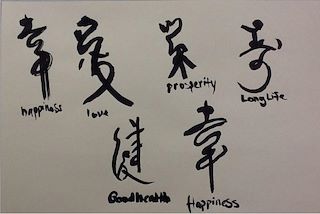 幸 愛 栄 寿
happiness love prosperity Long Life
健 幸
Good health Happiness